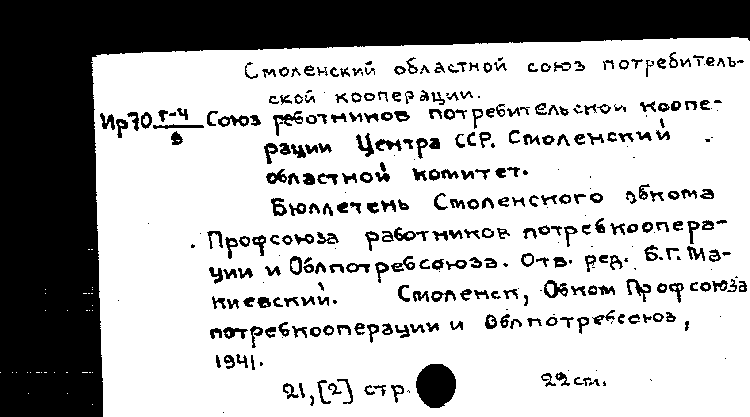 Смоленский областной союз потребитель-
ской кооперации.
Ир70 г-4/в Союз работников потребительской коопе-
рации Центра ССР. Смоленский
областной комитет.
Бюллетень Смоленского обкома
Профсоюза работников потребкоопера-
ции и Облпотребсоюза. Отв. ред. Б.Г. Ма-
киевский. Смоленск, Обком Профсоюза
потребкооперации и Облпотребсоюз,
1941.
21, [2] стр. 22 см.